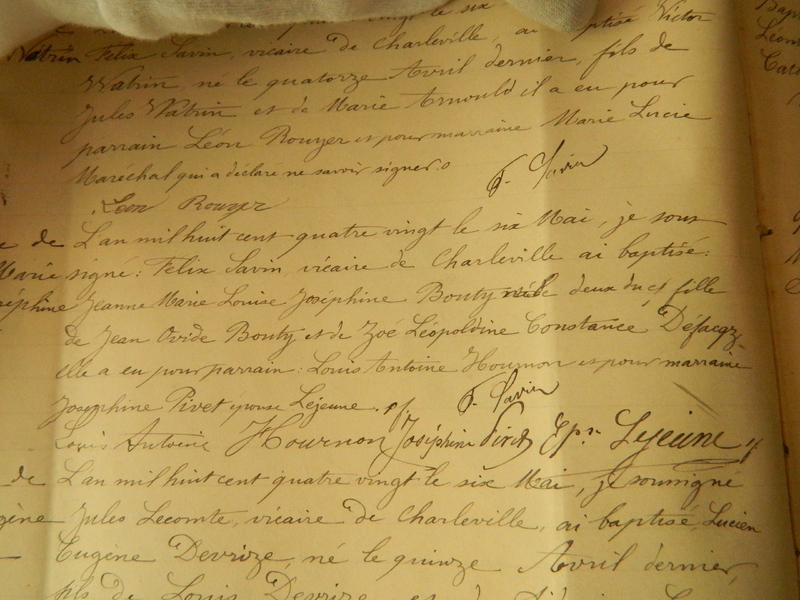 vingt le six
Watrin Felix Savin, vicaire de Charleville, ai baptisé Victor
Watrin, né le quatorze Avril dernier, fils de
Jules Watrin et de Marie Arnould il a eu pour
parrain Léon Rouyer et pour marraine Marie Lucie
Maréchal qui a déclaré ne savoir signer.
F. Savin
Léon Rouyer
de L'an mil huit cent quatre vingt le six Mai, je sous
Marie signé: Felix Savin, vicaire de Charleville ai baptisé:
Joséphine Jeanne Marie Louise Joséphine Bouty née le deux du ct fille
de Jean Ovide Bouty et de Zoé Léopoldine Constance
elle a eu pour parrain: Louis Antoine Hournon et pour marraine
Josephine Pivet épouse Lejeune.
F. Savin
Louis Antoine Hournon Joséphine Pivet Epse Lejeune
de L'an mil huit cent quatre vingt le six Mai, je soussigné
Jules Lecomte, vicaire de Charleville, ai baptisé, Lucien
Eugène Devrize, né le quinze Avril dernier,
fils de Louis Devrize et de